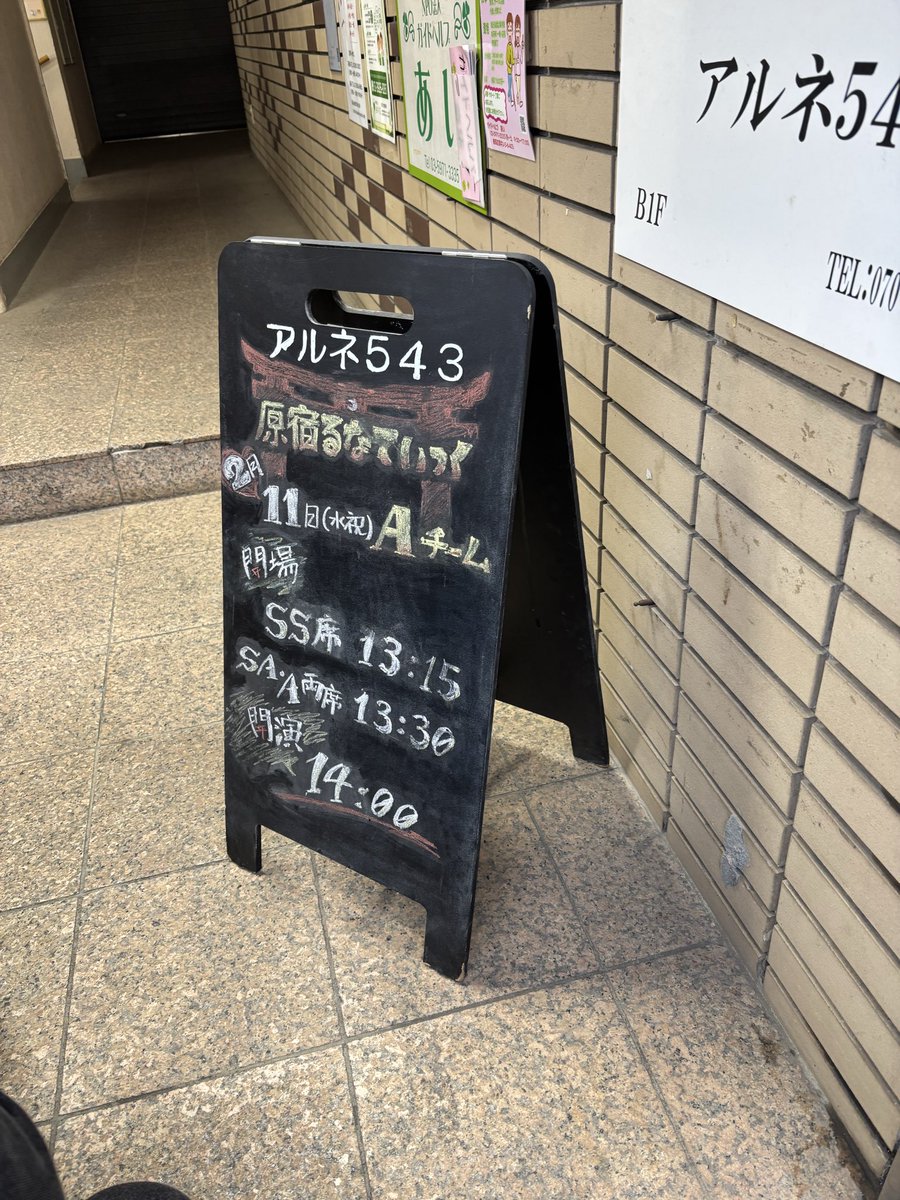 アルネ543
原宿るなてぃっく
2月
11日(水祝) Aチーム
開場
SS席 13:15
SA・A両席 13:30
開演
14:00
アルネ54
B1F
TEL:070
ガイドヘルプ
あし